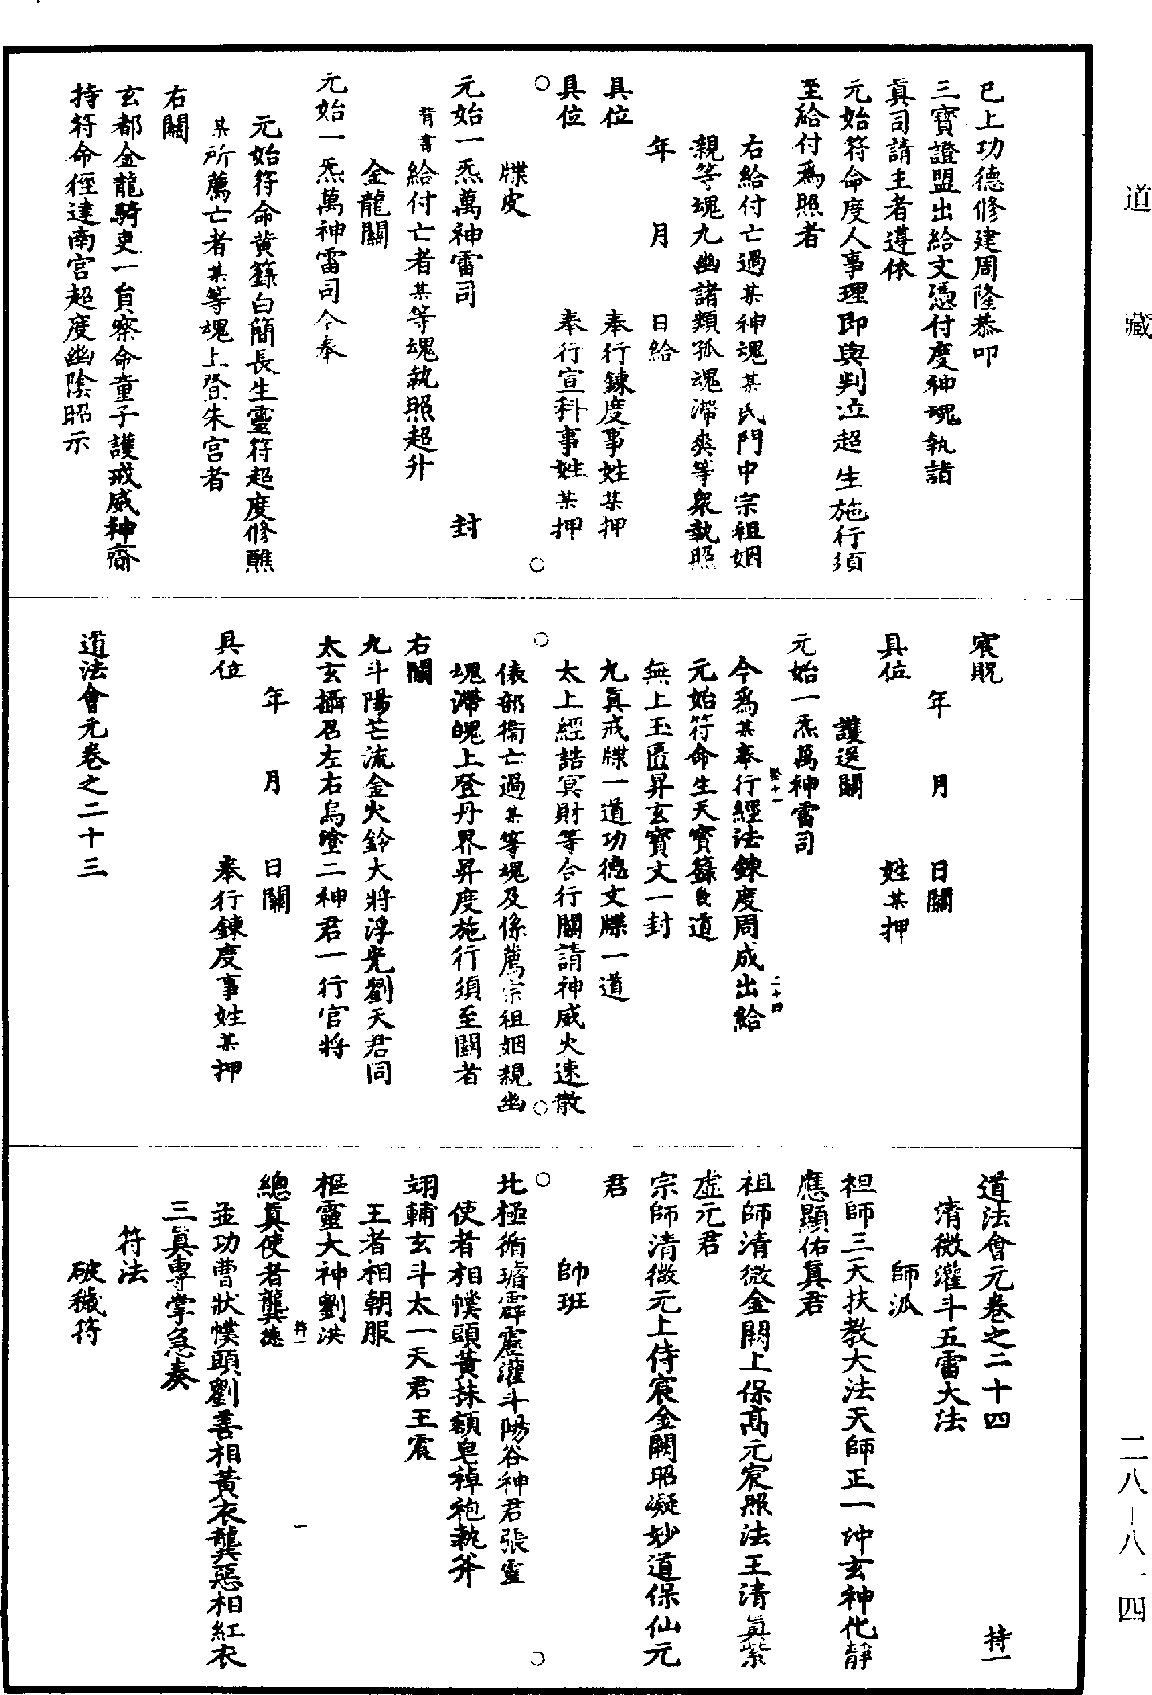 道藏
二八－八一四
已上功德修建周隆恭叩
三寶證盟出給文憑付度神魂執詣
眞司請主者遵依
元始符命度人事理即與判泣超生施行須
至給付爲照者
右給付亡過某神魂某氏門中宗祖姻
親等魂九幽諸類孤魂滯爽等衆執照
年　月　日給
具位　奉行鍊度事姓某押
具位　奉行宣科事姓某押
○　○
牒皮
元始一炁萬神雷司　封
背書給付亡者某等魂執照超升
金龍關
元始一炁萬神雷司今奉
元始符命黄籙白簡長生靈符超度修醮
某所薦亡者某等魂上登朱宫者
右關
玄都金龍騎吏一負察命童子護戒威神齎
持符命徑達南宫超度幽陰昭示
宸貺
年　月　日關
具位　姓某押
護送關
元始一炁萬神雷司
二十四
今爲某奉行經法鍊度周成出給
元始符命生天寳籙一道
無上玉匱昇玄寳文一封
九眞戒牒一道功德文牒一道
太上經誥冥財等合行關請神威火速散
○　○
俵部衛亡過某等魂及係薦宗祖姻親幽
魂滯魄上登丹界昇度施行須至關者
右關
九斗陽芒流金火鈴大將浮光劉天君同
太玄攝召左右烏塗二神君一行官將
年　月　日關
具位　奉行鍊度事姓某押
道法會元卷之二十三
道法會元卷之二十四　持一
清微灌斗五雷大法
師派
祖師三天扶教大法天師正一冲玄神化靜
應顯佑眞君
祖師清微金闕上保高元宸照法王清眞紫
虚元君
宗師清微元上侍宸金闕昭凝妙道保仙元
君
帥班
○　○
北極衛璿霹靂灌斗陽谷神君張靈
使者相幞頭黄抹額皂禅袍執斧
翊輔玄斗太一天君王宸
王者相朝服
樞靈大神劉洪
總眞使者龔德
孟功曹狀幞頭劉善相黄衣龔惡相紅衣
三眞專掌急奏
符法
破穢符